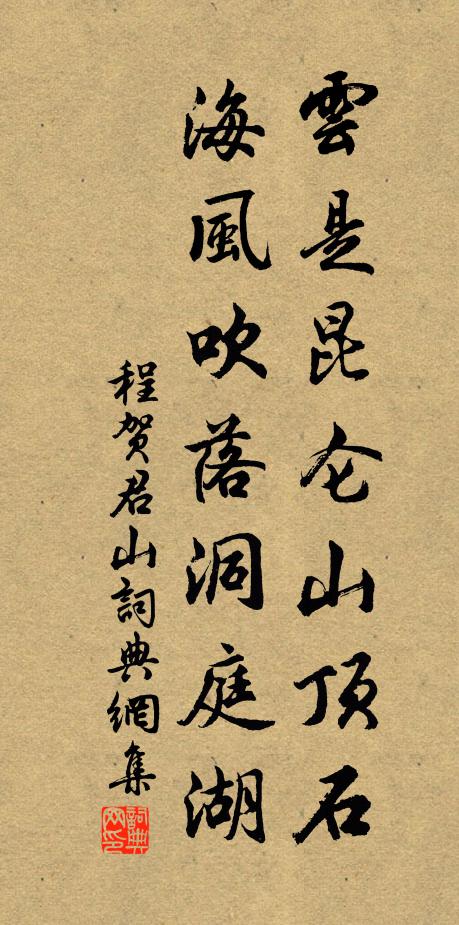 雲是昆仑山顶石
海風吹落洞庭湖
程贺君山詞典網集
詞典网印